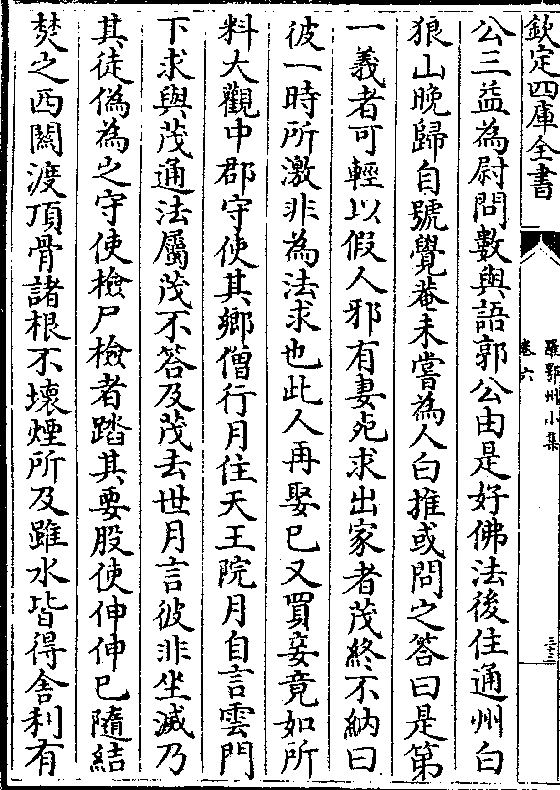 欽定四庫全書
羅鄂州小集
卷六
三三
公三益為尉問數與語郭公由是好佛法後住通州白
狼山晚歸自號覺菴未嘗為人白推或問之答曰是第
一義者可輕以假人邪有妻死求出家者茂終不納曰
彼一時所激非為法求也此人再娶已又買妾竟如所
料大觀中郡守使其鄉僧行月住天王院月自言雲門
下求與茂通法屬茂不答及茂去世月言彼非坐滅乃
其徒偽為之守使檢尸檢者踏其要股使伸伸已隨結
焚之西闕渡頂骨諸根不壞煙所及雖水皆得舍利有